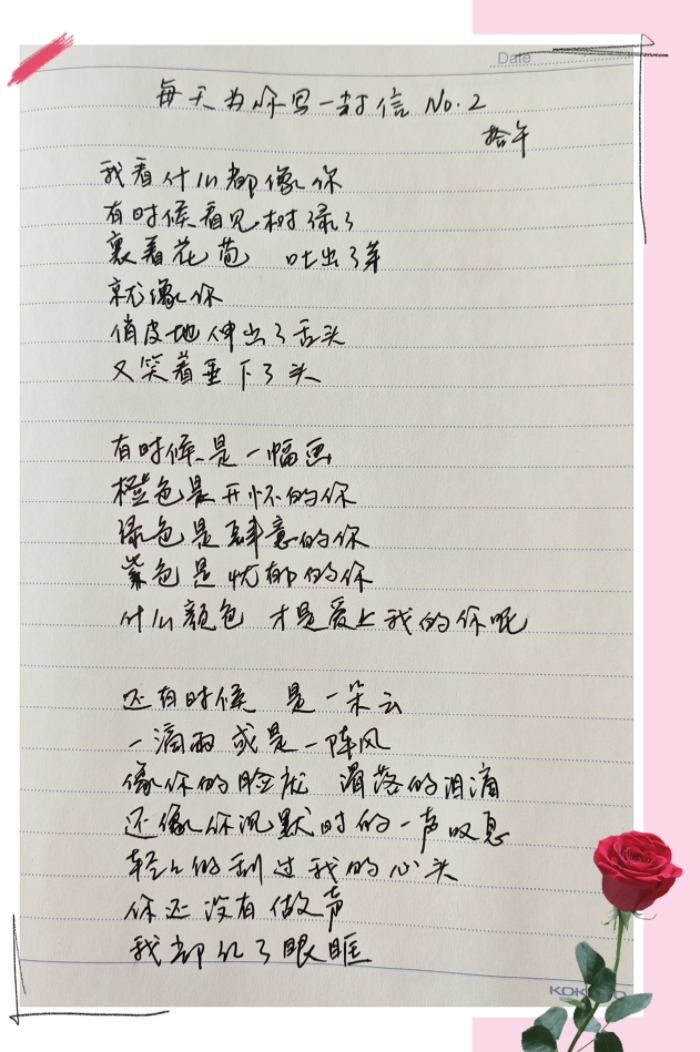 Date
每天为你写一封信 No.2
拾午
我看什么都像你
有时候看见树绿了
裹着花苞 吐出了芽
就像你
俏皮地伸出了舌头
又笑着垂下了头
有时候是一幅画
橙色是开怀的你
绿色是肆意的你
紫色是忧郁的你
什么颜色 才是爱上我的你呢
还有时候 是一朵云
一滴雨或是一阵风
像你的脸庞 滑落的泪滴
还像你沉默时的一声叹息
轻轻的刮过我的心头
你还没有做声
我却红了眼眶